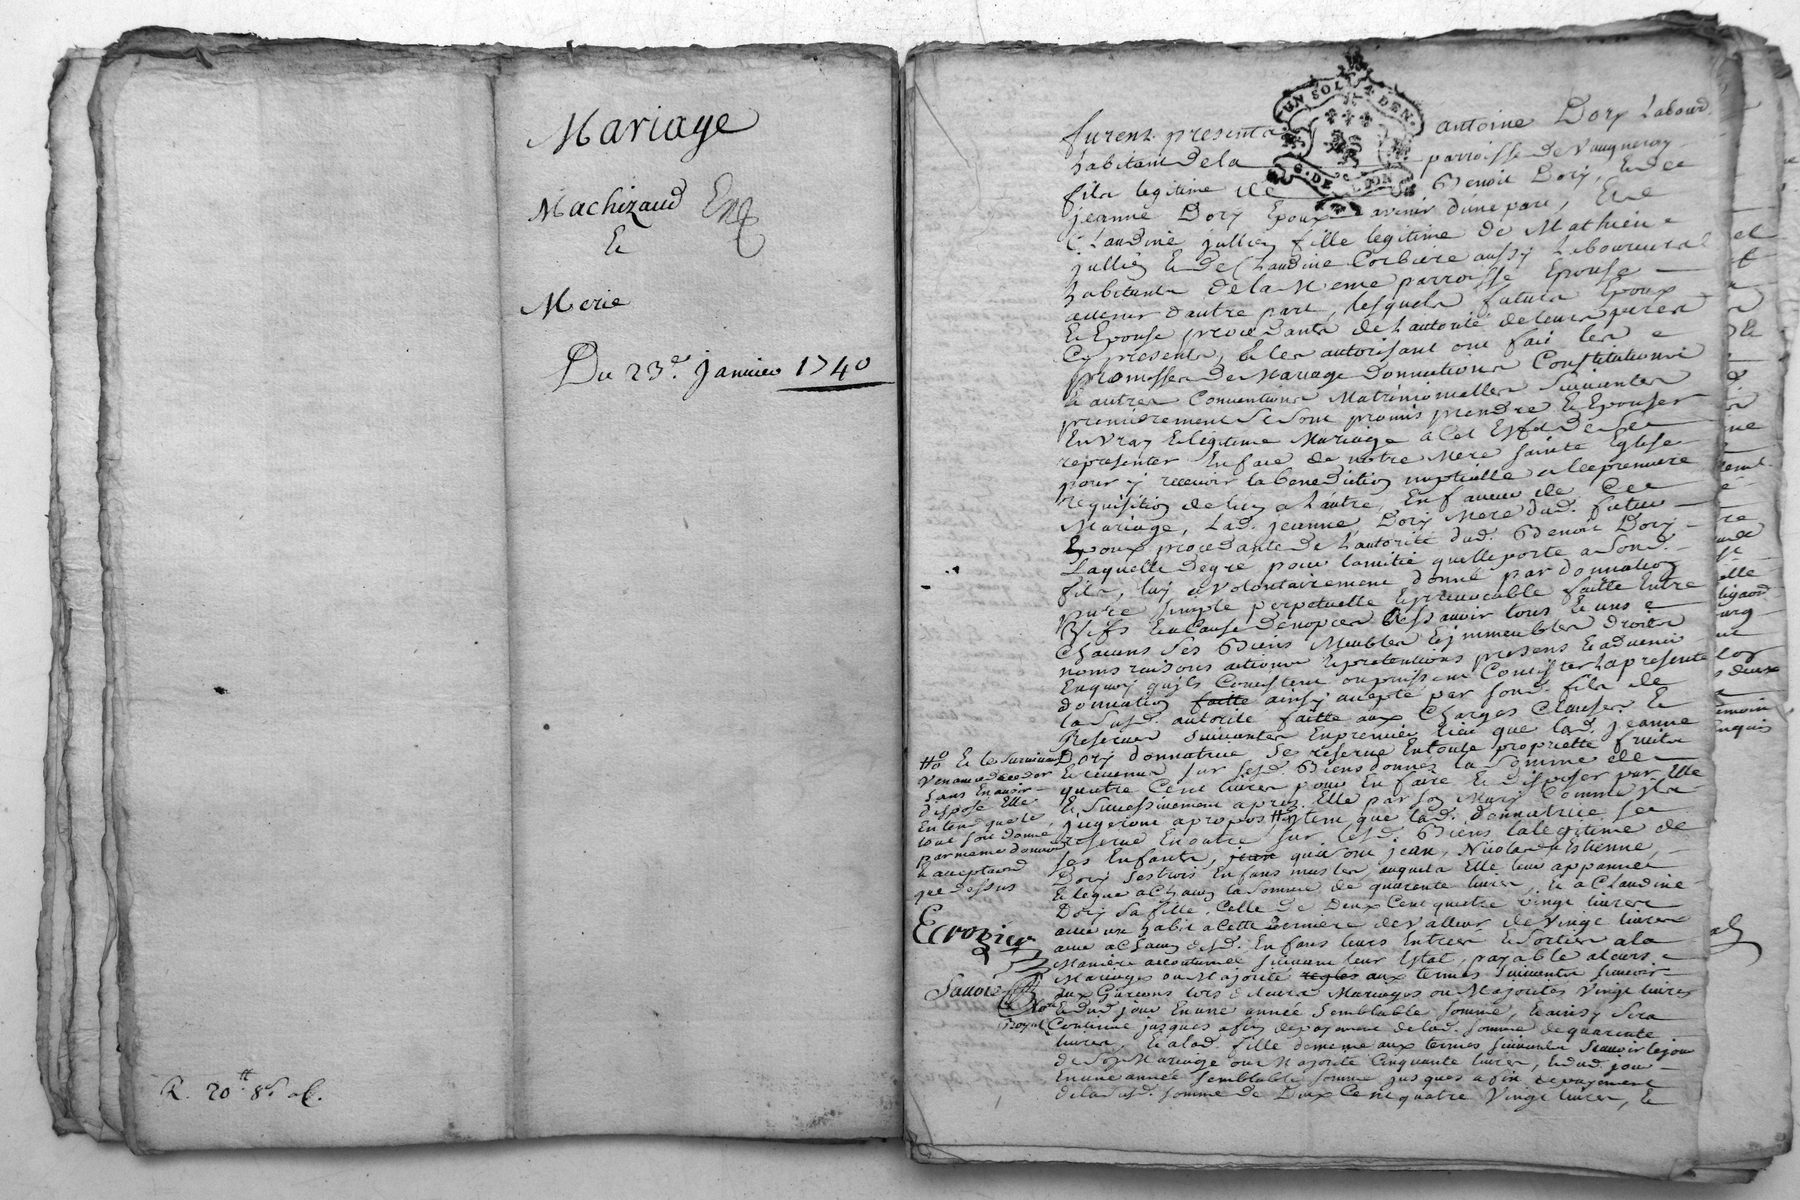 Mariage
Machizaud
Et
Merie
Du 23e. Janvier 1740
R. 20tt. 8s
UN SOL 4 DEN.
G. DE LYON
furent presents antoine Dory Labour.
habitant de la parroisse de Vaugneray
fils legitime de Benoit Dory, Et de
jeanne Dory Epoux avenir d'une part, Et
Claudine jullien fille legitime de Mathieu
jullien Et de Claudine Corbiere aussy Laboureurs
habitants de la Meme parroisse Epouse
advenir d'autre part, lesquels futurs Epoux
Et Epouse procedants de l'autorité de leurs peres
Cy presents, Et les autorisant ont fait les
promesses de Mariage donnations Constitutions
Et autres Conventions Matrimonialles Suivantes
premierement Se sont promis prendre Et Epouser
En Vray Et legitime Mariage a Cet Effet de Se
representer En face de notre Mere Sainte Eglise
pour y recevoir la benediction nuptialle a la premiere
requisition de l'un a l'autre, En faveur de Ce
Mariage, Lad. jeanne Dory Mere dud. futur
Epoux procedante de l'autorité dud. Benoit Dory
Laquelle de gré pour l'amitié qu'elle porte a Sond.
fils, luy a Volontairement donné par donnation
pure Simple perpetuelle Et irrevocable faitte Entre
Vifs Et a Cause de nopces Scavoir tous Et uns
Chacuns Ses Biens Meubles Et immeubles droits
noms raisons actions Et pretentions presens Et advenir
En quoy qu'ils Consistent ou puissent Consister la presente
donnation faitte ainsy acceptée par Sond. fils de
la Susd. autorité faitte aux Charges Clauses Et
Reserves Suivantes En premier lieu que lad. jeanne
Dory donnatrice Se reserve En toute propriette fruits
Et revenus Sur Sesd. Biens donnés la Somme de
quatre Cent livres pour En faire Et disposer par Elle
Et Successivement apres Elle par Son Mary Comme ils
jugeront a propos Item que lad. donnatrice Se
reserve En outre Sur Lesd. Biens la legitime de
Ses Enfants, jean qui Sont jean, Nicolas Et Estienne
Dory Ses trois Enfans masles auquels Elle leur appanne
Et legue a Chacun la Somme de quarente livres, Et a Claudine
Dory Sa fille, Celle de Deux Cent quatre vingt livres
avec un habit a Cette derniere de Valleur de Vingt livres
avec a Chacun desd. Enfans leurs Entrées Et Sorties a la
Maniere accoutumée Suivant leur Estat, payable a leurs
Mariages ou Majorité regles aux termes Suivants Scavoir
aux Garcons lors de leurs Mariages ou Majorités Vingt livres
Et dud. jour En une année Semblable Somme, Et ainsy Sera
Continué jusques a fin de payement de lad. Somme de quarente
livres, Et a lad. fille de meme aux termes Suivants Scavoir le jour
de Son Mariage ou Majorité Cinquante livres, Et dud. jour
En une année Semblable Somme jusques a fin de payement
de la Susd. Somme de Deux Cent quatre Vingt livres, Et
Et le Survivant
Venant a deceder
Sans En avoir
disposé Elle
Entend que le
tout Soit donné
par meme donnation
Et acceptation
que dessus
Ecrozier
Savoie
Nore
Royal